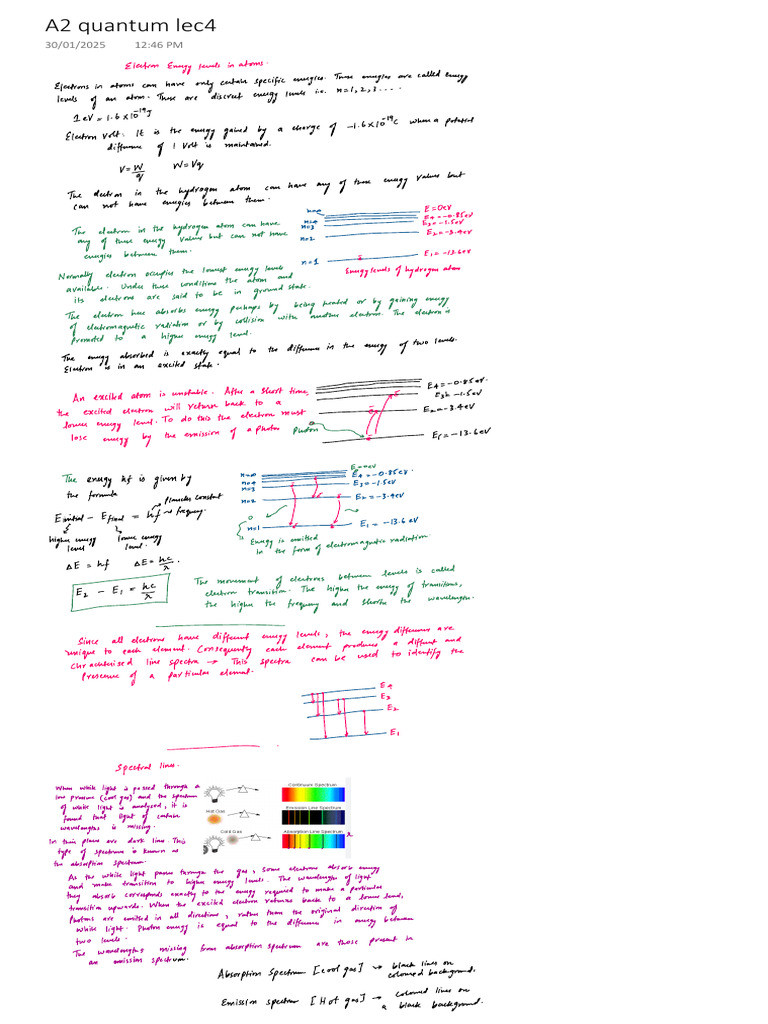 A2 quantum lec4
30/01/2025 12:46 PM
Electron Energy levels in atoms.
Electrons in atoms can have only certain specific energies. These energies are called energy
levels of an atom. These are discreet energy levels i.e. n=1, 2, 3 ....
1 eV = 1.6 x 10^-19 J
Electron Volt: It is the energy gained by a charge of -1.6 x 10^-19 C when a potential
difference of 1 Volt is maintained.
V = W/q W = Vq
The electron in the hydrogen atom can have any of these energy values but
can not have energies between them.
The electron in the hydrogen atom can have
any of these energy values but can not have
energies between them.
n=∞ E=0eV
n=4 E4=-0.85eV
n=3 E3=-1.5eV
n=2 E2=-3.4eV
n=1 E1=-13.6eV
Energy levels of hydrogen atom
Normally electron occupies the lowest energy levels
available. Under these conditions the atom and
its electrons are said to be in ground state.
The electron here absorbs energy perhaps by being heated or by gaining energy
of electromagnetic radiation or by collision with another electron. The electron is
promoted to a higher energy level.
The energy absorbed is exactly equal to the difference in the energy of two levels.
Electron is in an excited state.
An excited atom is unstable. After a short time,
the excited electron will return back to a
lower energy level. To do this the electron must
lose energy by the emission of a photon
Photon
E4=-0.85eV.
E3=-1.5eV
E2=-3.4eV
E1=-13.6eV
The energy hf is given by
the formula
Einitial - Efinal = hf
Plancks constant
frequency.
higher energy level
lower energy level.
ΔE = hf ΔE = hc/λ.
E2 - E1 = hc/λ
n=∞ E=0eV
n=4 E4=-0.85eV.
n=3 E3=-1.5eV
n=2 E2=-3.4eV
n=1 E1=-13.6eV
Energy is emitted
in the form of electromagnetic radiation.
The movement of electrons between levels is called
electron transition. The higher the energy of transitions,
the higher the frequency and shorter the wavelength.
Since all electrons have different energy levels, the energy difference are
unique to each element. Consequently each element produces a different and
characterised line spectra → This spectra can be used to identify the
Presence of a particular element.
E4
E3
E2
E1
Spectral lines.
When white light is passed through a
low pressure (cool gas) and the spectrum
of white light is analyzed, it is
found that light of certain
wavelengths is missing.
In their place are dark lines. This
type of spectrum is known as
the absorption spectrum.
Continuum Spectrum
Hot Gas
Emission Line Spectrum
Cold Gas
Absorption Line Spectrum
As the white light passes through the gas, some electrons absorb energy
and make transition to higher energy levels. The wavelength of light
they absorb corresponds exactly to the energy required to make a particular
transition upwards. When the excited electron returns back to a lower level,
Photons are emitted in all directions, rather than the original direction of
white light. Photon energy is equal to the difference in energy between
two levels.
The wavelengths missing from absorption spectrum are those present in
an emission spectrum.
Absorption Spectrum [cool gas] → black lines on
coloured background.
Emission spectrum [Hot gas] → coloured lines on
a black background.